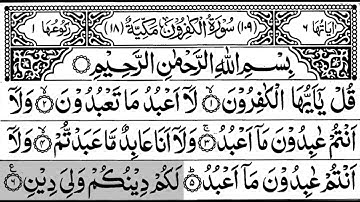 اٰیَاتُهَا ٦ (١٠٩) سُوْرَةُ الْكٰفِرُوْنَ مَكِّيَّةٌ (١٨) رُكُوْعُهَا ١
بِسْمِ اللّٰهِ الرَّحْمٰنِ الرَّحِيْمِ
قُلْ يٰۤاَيُّهَا الْكٰفِرُوْنَ ۙ﴿١﴾ لَاۤ اَعْبُدُ مَا تَعْبُدُوْنَ ۙ﴿٢﴾ وَلَاۤ
اَنْتُمْ عٰبِدُوْنَ مَاۤ اَعْبُدُ ۚ﴿٣﴾ وَلَاۤ اَنَا عَابِدٌ مَّا عَبَدْتُّمْ ۙ﴿٤﴾ وَلَاۤ
اَنْتُمْ عٰبِدُوْنَ مَاۤ اَعْبُدُ ؕ﴿٥﴾ لَكُمْ دِيْنُكُمْ وَلِيَ دِيْنِ ﴿٦﴾